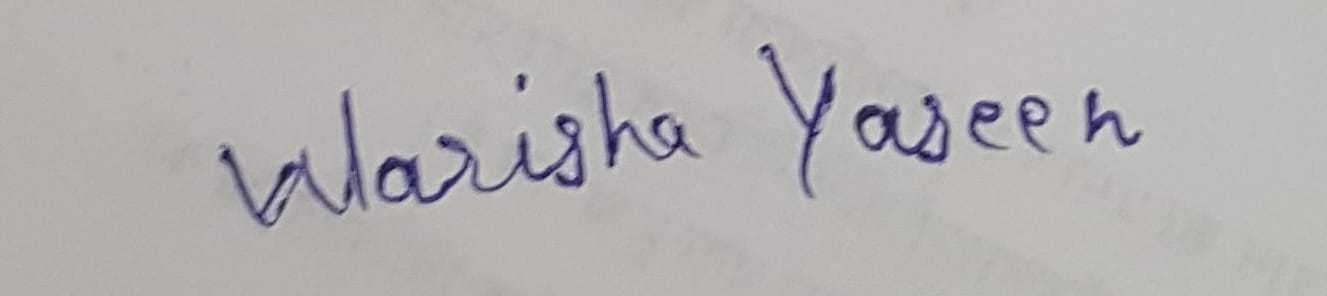 Warisha Yaseen